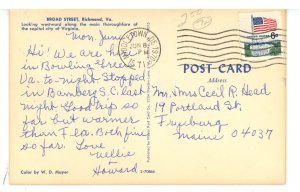 BROAD STREET, Richmond, Va.
Looking westward along the main thoroughfare of
the capital city of Virginia.
Mon. June
Hi! We are here
in Bowling Green
Va. to-night. Stopped
in Bamberg S.C. last
night. Good trip so
far but warmer
than Fla. Both fine
so far. Love
Nellie
+
Howard
Color by W. D. Mayer
POST CARD
Address
Mr. & Mrs. Cecil R. Head
19 Portland St.
Fryeburg
Maine 04037
JUN 8
PM
1971
UNITED STATES
6c